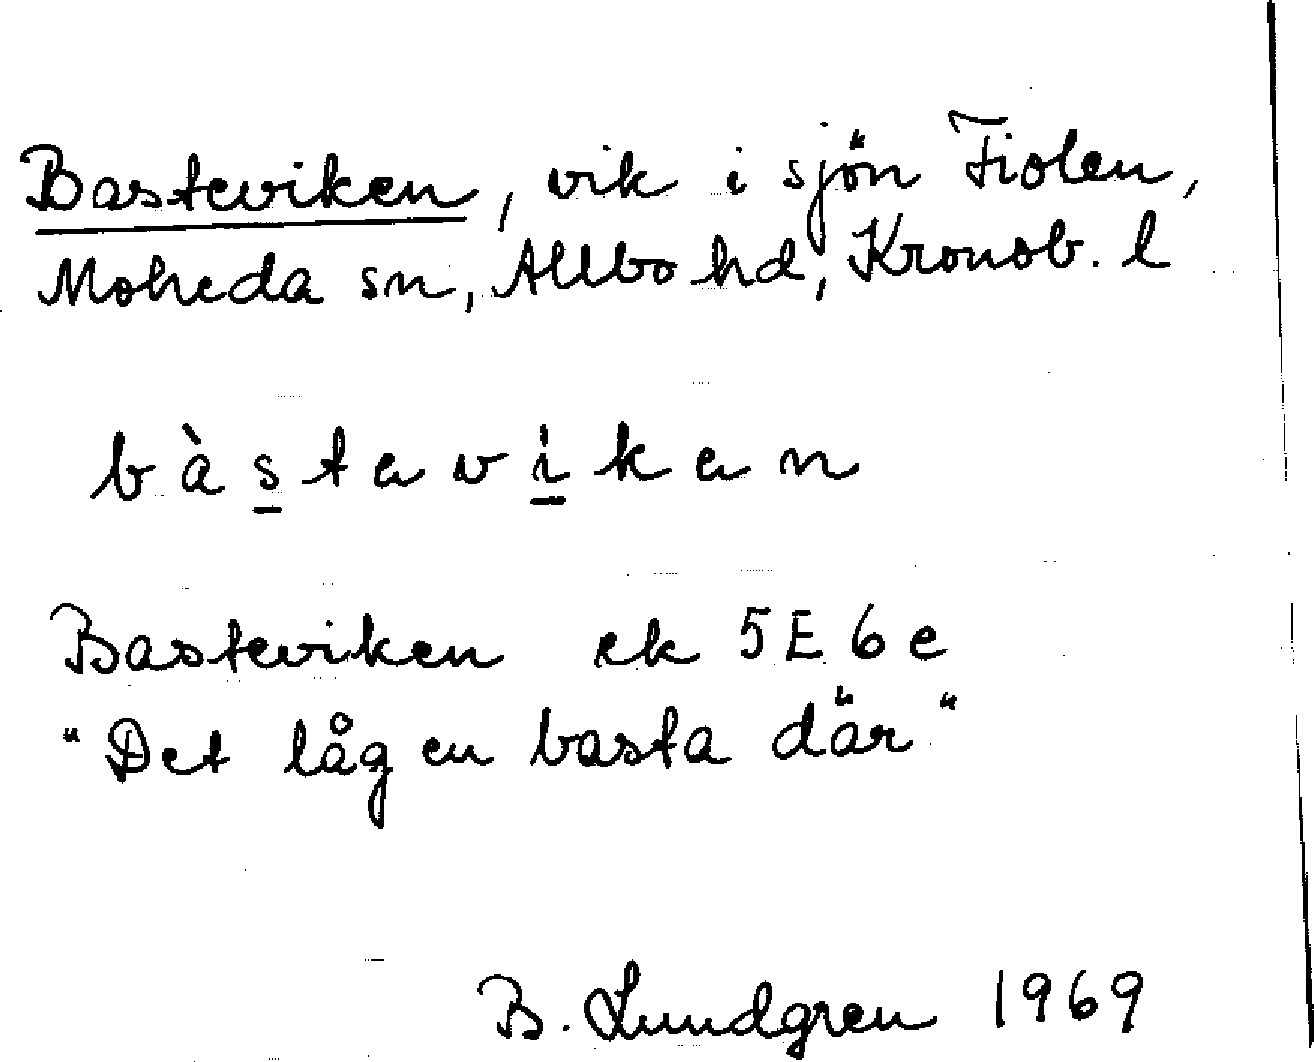 Basteviken, vik i sjön Fiolen,
Moheda sn, Allbo hd, Kronob. l
bàstavikan
Basteviken ek 5E 6e
"Det låg en basta där"
B. Lundgren 1969